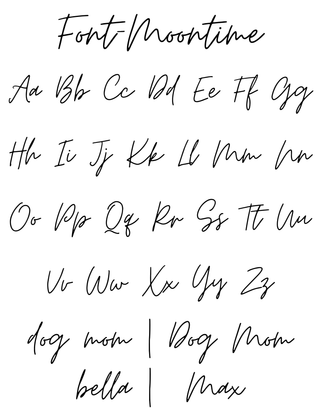 Font-Moontime
Aa Bb Cc Dd Ee Ff Gg
Hh Ii Jj Kk Ll Mm Nn
Oo Pp Qq Rr Ss Tt Uu
Vv Ww Xx Yy Zz
dog mom | Dog Mom
bella | Max